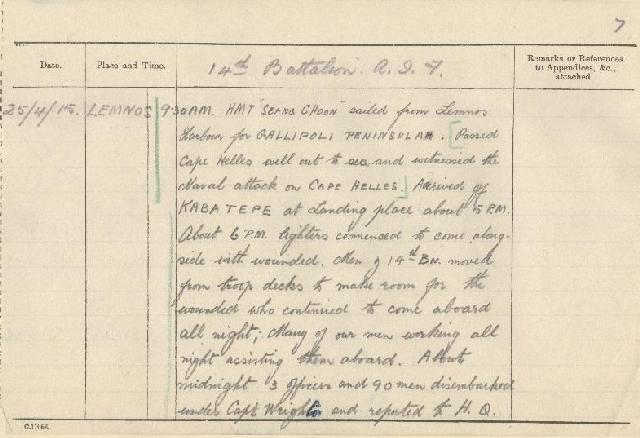 7
Date. Place and Time. 14th Battalion. A.I.F. Remarks or References to Appendices, &c., attached
25/4/15. LEMNOS 9·30AM. HMT "SEANG CHOON" sailed from Lemnos
Harbour for GALLIPOLI PENINSULAR. [Passed
Cape Helles well out to sea and witnessed the
Naval attack on CAPE HELLES.] Arrived off
KABA TEPE at Landing place about 5 P.M.
About 6 P.M. lighters commenced to come along-
side with wounded. Men of 14th Bn. moved
from troop decks to make room for the
wounded who continued to come aboard
all night; Many of our men working all
night assisting them aboard. About
midnight 3 officers and 90 men disembarked
under Capt Wright and reported to H.Q.